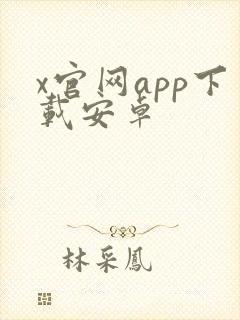 x官网app下
载安卓
林采鳳